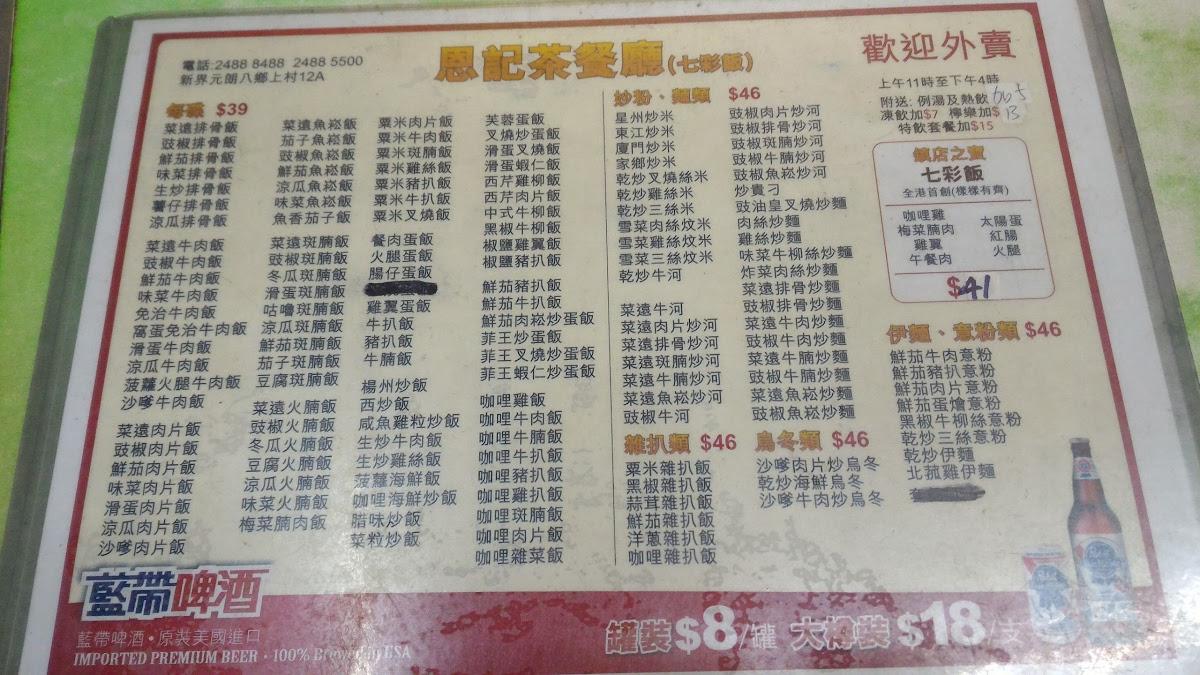 電話:2488 8488 2488 5500
新界元朗八鄉上村12A
恩記茶餐廳(七彩飯)
歡迎外賣
上午11時至下午4時
附送: 例湯及熱飲
凍飲加$7 檸樂加$
13
特飲套餐加$15
鎮店之寶
七彩飯
全港首創(樣樣有齊)
咖哩雞
梅菜腩肉
雞翼
午餐肉
太陽蛋
紅腸
火腿
$41
每碟 $39
菜遠排骨飯
豉椒排骨飯
鮮茄排骨飯
味菜排骨飯
生炒排骨飯
薯仔排骨飯
涼瓜排骨飯
菜遠牛肉飯
豉椒牛肉飯
鮮茄牛肉飯
味菜牛肉飯
免治牛肉飯
窩蛋免治牛肉飯
滑蛋牛肉飯
涼瓜牛肉飯
菠蘿火腿牛肉飯
沙嗲牛肉飯
菜遠肉片飯
豉椒肉片飯
鮮茄肉片飯
味菜肉片飯
滑蛋肉片飯
涼瓜肉片飯
沙嗲肉片飯
菜遠魚崧飯
茄子魚崧飯
豉椒魚崧飯
鮮茄魚崧飯
涼瓜魚崧飯
味菜魚崧飯
魚香茄子飯
菜遠斑腩飯
豉椒斑腩飯
冬瓜斑腩飯
滑蛋斑腩飯
咕嚕斑腩飯
涼瓜斑腩飯
鮮茄斑腩飯
茄子斑腩飯
豆腐斑腩飯
菜遠火腩飯
豉椒火腩飯
冬瓜火腩飯
豆腐火腩飯
涼瓜火腩飯
味菜火腩飯
梅菜腩肉飯
粟米肉片飯
粟米牛肉飯
粟米斑腩飯
粟米雞絲飯
粟米豬扒飯
粟米牛扒飯
粟米叉燒飯
餐肉蛋飯
火腿蛋飯
腸仔蛋飯
雞翼蛋飯
牛扒飯
豬扒飯
牛腩飯
楊州炒飯
西炒飯
咸魚雞粒炒飯
生炒牛肉飯
生炒雞絲飯
菠蘿海鮮飯
咖哩海鮮炒飯
腊味炒飯
菜粒炒飯
芙蓉蛋飯
叉燒炒蛋飯
滑蛋叉燒飯
滑蛋蝦仁飯
西芹雞柳飯
西芹肉片飯
中式牛柳飯
黑椒牛柳飯
椒鹽雞翼飯
椒鹽豬扒飯
鮮茄豬扒飯
鮮茄牛扒飯
鮮茄肉崧炒蛋飯
菲王炒蛋飯
菲王叉燒炒蛋飯
菲王蝦仁炒蛋飯
咖哩雞飯
咖哩牛肉飯
咖哩牛腩飯
咖哩牛扒飯
咖哩豬扒飯
咖哩雞扒飯
咖哩斑腩飯
咖哩肉片飯
咖哩雜菜飯
炒粉、麵類 $46
星州炒米
東江炒米
廈門炒米
家鄉炒米
乾炒叉燒絲米
乾炒雞絲米
乾炒三絲米
雪菜肉絲炆米
雪菜雞絲炆米
雪菜三絲炆米
乾炒牛河
菜遠牛河
菜遠肉片炒河
菜遠排骨炒河
菜遠斑腩炒河
菜遠牛腩炒河
菜遠魚崧炒河
豉椒牛河
豉椒肉片炒河
豉椒排骨炒河
豉椒斑腩炒河
豉椒牛腩炒河
豉椒魚崧炒河
炒貴刁
豉油皇叉燒炒麵
肉絲炒麵
雞絲炒麵
味菜牛柳絲炒麵
炸菜肉絲炒麵
菜遠排骨炒麵
豉椒排骨炒麵
菜遠牛肉炒麵
豉椒牛肉炒麵
菜遠牛腩炒麵
豉椒牛腩炒麵
菜遠魚崧炒麵
豉椒魚崧炒麵
雜扒類 $46
粟米雜扒飯
黑椒雜扒飯
蒜茸雜扒飯
鮮茄雜扒飯
洋蔥雜扒飯
咖哩雜扒飯
烏冬類 $46
沙嗲肉片炒烏冬
乾炒海鮮烏冬
沙嗲牛肉炒烏冬
伊麵、意粉類 $46
鮮茄牛肉意粉
鮮茄豬扒意粉
鮮茄肉片意粉
鮮茄蛋燴意粉
黑椒牛柳絲意粉
乾炒三絲意粉
乾炒伊麵
北菰雞伊麵
藍帶啤酒
藍帶啤酒·原裝美國進口
IMPORTED PREMIUM BEER · 100% Brewed in USA
罐裝$8/罐 大樽裝$18/支